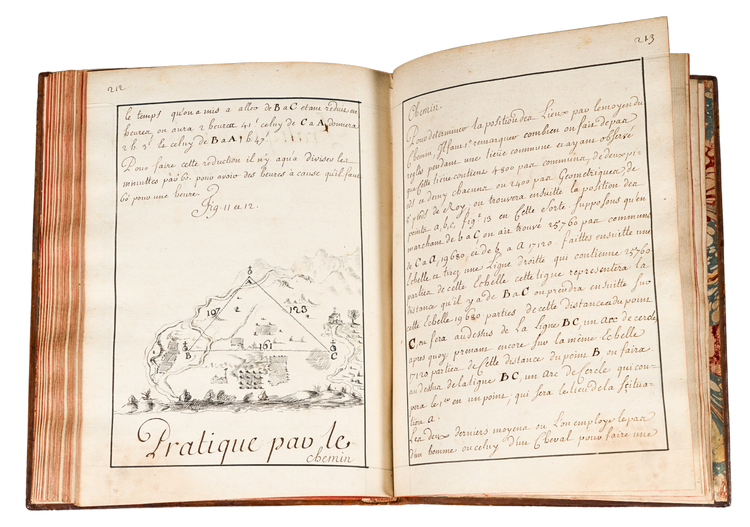 212
le temps qu'on a mis a aller de B a C etant reduit en
heures on aura 2 heures 41' celuy de C a A donnera
2 h 3' le celuy de B a A 1 h 47'
Pour faire cette reduction il n'y a qu'a diviser les
minuttes par 60 pour avoir des heures a cause qu'il faut
60 pour une heure.
Fig. 11 et 12.
A
107
2
123
B
161
C
Pratique par le
chemin
213
Chemin.
Pour determiner la position des Lieux par le moyen du
Chemin, il faut remarquer combien on fait de pas
reglés pendant une lieüe commune et ayant observé
que cette lieüe contient 4800 pas communs, de deux pi-
eds et demy chacuns ou 2400 pas Geometriques, de
5 pieds de Roy, on trouvera ensuitte la position des
points a, b, c, fig.e 13 en cette sorte. Supposons qu'en
marchant de b a C on ait trouvé 25760 pas communs
de C a A, 19680, et de b a A 17120. faittes ensuitte une
Echelle et tirez une Ligne droitte qui contienne 25760
parties de cette Echelle cette ligne representera la
distance qu'il y a de B a C on prendra ensuitte sur
cette Echelle 19680 parties de cette distance et du point
C, on fera au dessus de la Ligne BC, un arc de cercle
apres quoy prenant encore sur la même Echelle
17120 parties de cette distance du point B on faira
au dessus de la ligne BC, un arc de Cercle qui cou-
pera le 1er en un point, qui sera le lieu de la scitua-
tion a.
Les deux derniers moyens ou L'on employe le pas
d'un homme ou celuy d'un Cheval pour faire une